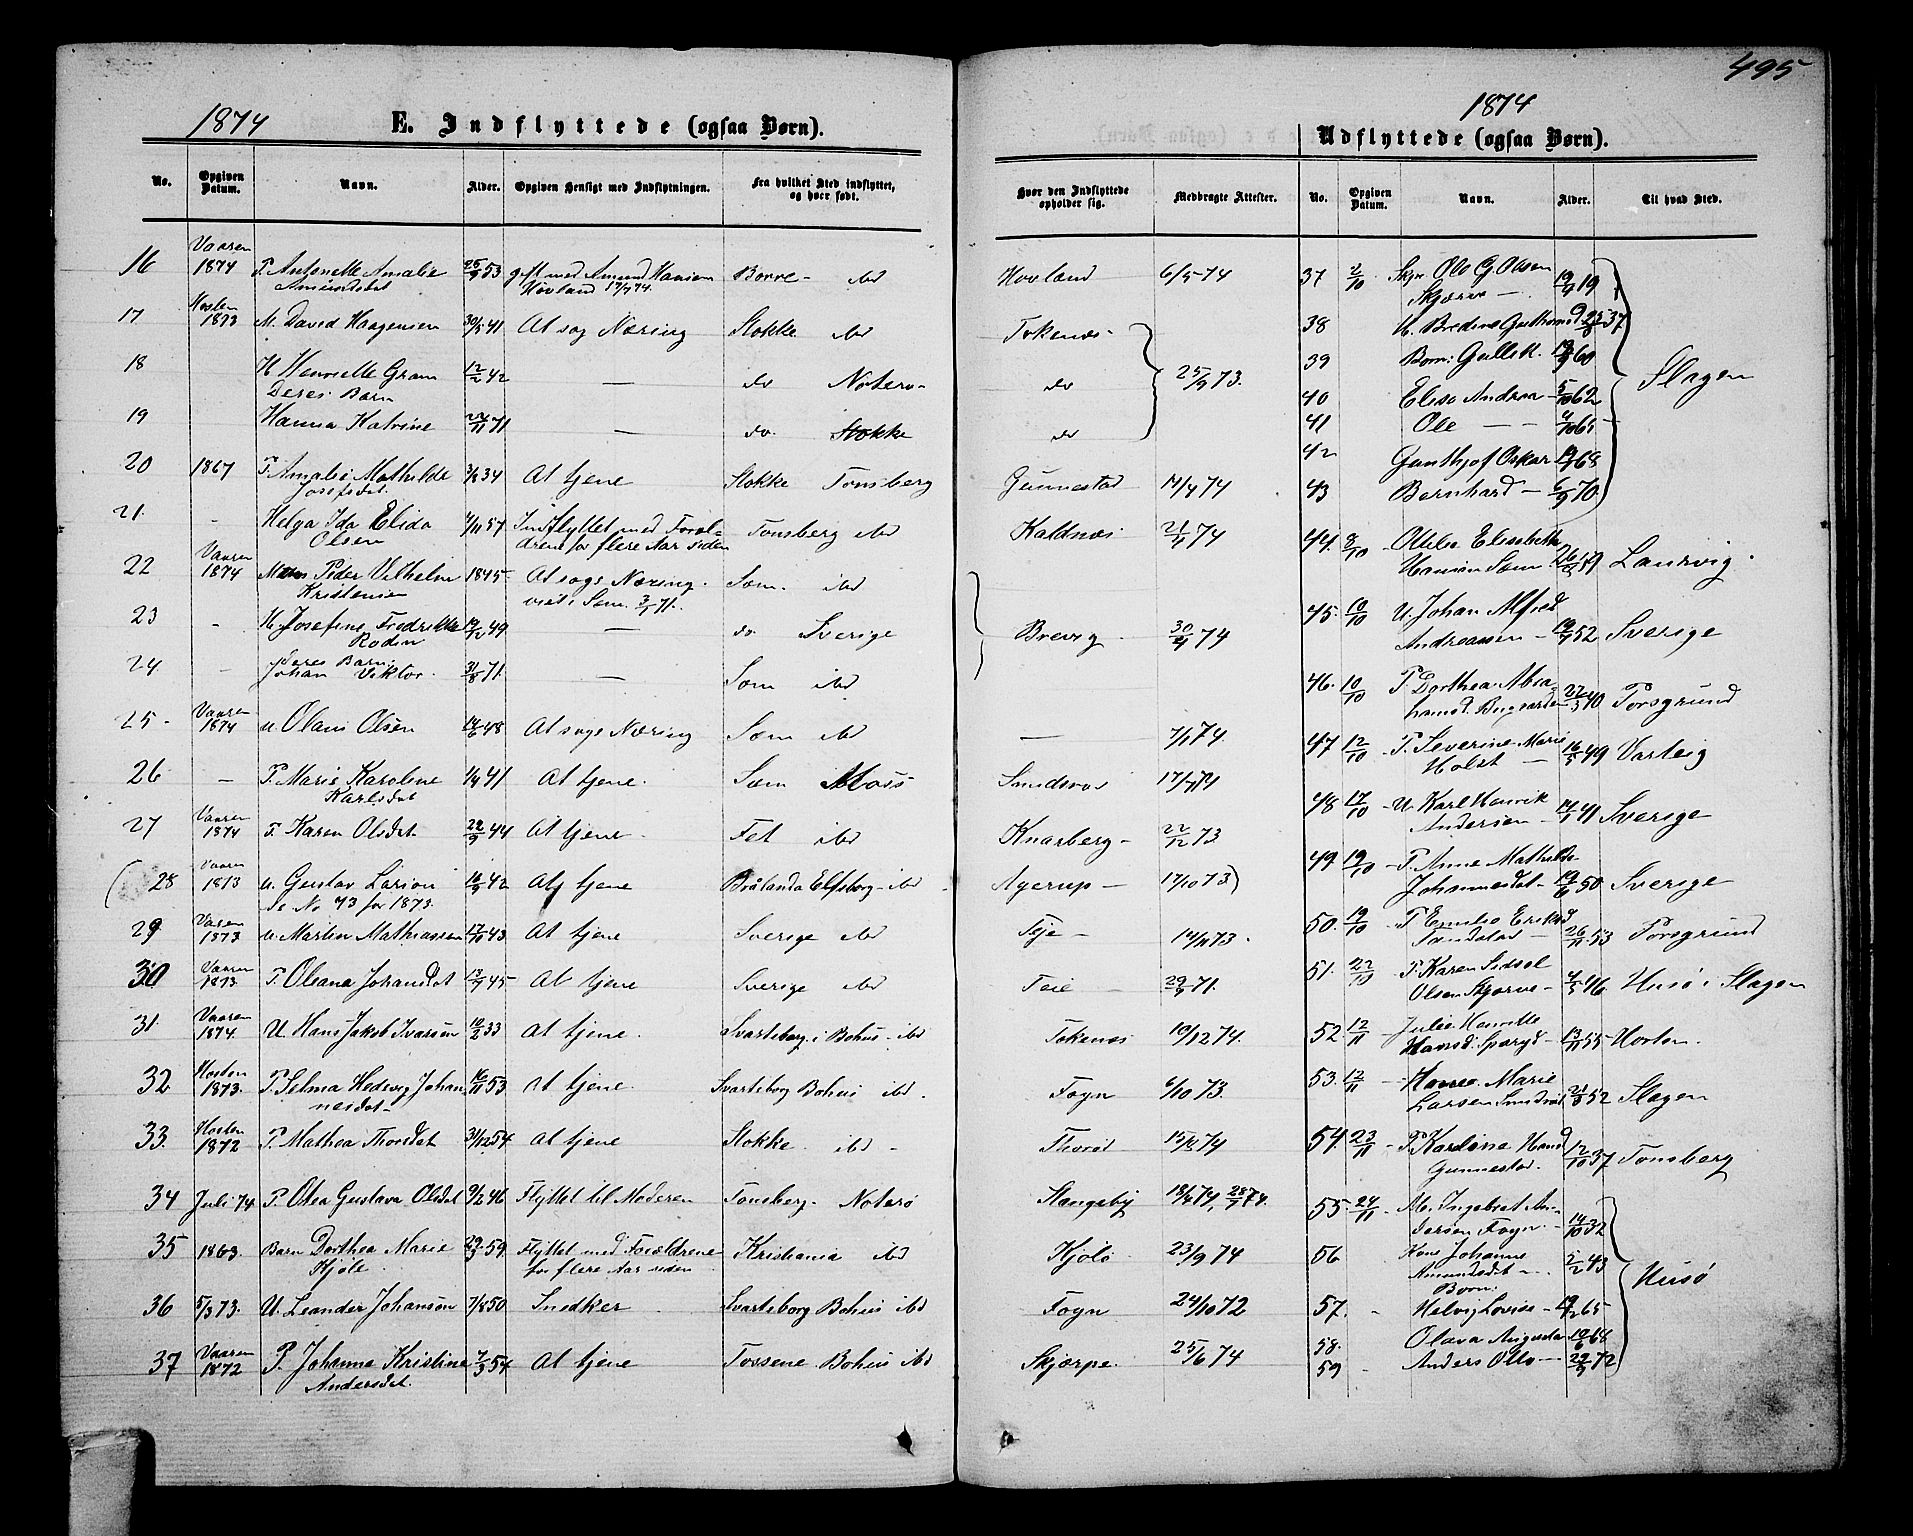 495
1874
E. Indflyttede (ogsaa Børn).
No.
Opgiven Datum.
Navn.
Alder.
Opgiven Hensigt med Indflytningen.
Fra hvilket Sted indflyttet, og hvor født.
Hvor den Indflyttede opholder sig.
Medbragte Attester.
16 Vaaren 1874 P. Antonette Amalie Amundsdat 25/9 53 gft med Amund Hansen Hovland 17/7 74. Borre - ibd Hovland 6/5 74
17 Høsten 1873 M. David Haagensen 30/5 41 At søg Næring Stokke ibd Tokenæs
18 H Henriette Gram 12/2 42 — do Noterø do 25/9 73.
Deres Barn
19 Hanna Katrine 22/11 71 — do. Stokke do
20 1867 P. Amalie Mathilde Josefsdat. 3/8 34 At tjene Stokke Tønsberg Gunnestad 14/4 74
21. - Helga Ida Elida Olsen 4/11 57 Indflyttet med Foræl-
drene for flere Aar siden Tønsberg ibd Kaldnæs 21/4 74
22 Vaaren 1874 Peder Vilhelm Kristensen 1845 At søge Næring.
viet i Sem. 3/1 71. Sem. ibd
23 - H. Josefine Fredrikke Rodin 14/12 49 — do Sverige Brevig 30/4 74
24 - Deres Barn.
Johan Viktor. 31/8 71. — Sem ibd
25 - Vaaren 1874 U. Olaus Olsen 14/6 48 At søge Næring Sem ibd — 7/1 74.
26 - P. Marie Karoline Karlsdat 1/4 41 At tjene. Sem Moss Smidsrød 17/4 74
27 Vaaren 1874 P. Karen Olsdat 22/9 44 At tjene. Fet ibd Knarberg - 22/12 73
(28 Vaaren 1873 U. Gustav Larson 16/9 42 At tjene Brålanda Elfsborg - ibd Agerup - 17/10 73)
Se No 43 for 1873.
29 Vaaren 1873 U. Martin Mathiassen 17/10 43 At tjene Sverige ibd Teje - 14/11 73.
30 Vaaren 1873. P. Oleana Johansdat 13/7 45 At tjene Sverige ibd Teie - 29/9 71.
31. Vaaren 1874. U Hans Jakob Ivarsen 10/2 33 At tjene. Svarteborg i Bohus - ibd Tokenæs 19/12 74.
32 Høsten 1873. P. Selma Hedevig Johan-
nesdat - 16/11 53 At tjene. Svarteborg Bohus ibd. Fogn 6/10 73.
33. Høsten 1872 P. Mathea Thorsdat 31/12 54 At tjene Stokke ibd - Thorød 15/12 74
34 Juli 74 P. Otea Gustava Olsdat 9/2 46 Flyttet til Moderen Tønsberg. Noterø Stangeby 18/6 74, 28/7 74.
35 1863 Barn Dorthea Marie Kjøle. 29/3 59. Flyttet med Forældrene
for flere Aar siden Kristiania ibd Kjølø 23/9 74
36 5/3 73. U. Leander Johansen 7/8 50 Snedker Svarteborg Bohus ibd Fogn 24/10 72
37 Vaaren 1872 P. Johanna Kristine Andersdat. 7/3 54 At tjene Tossene Bohus ibd Skjærpe. 25/6 74
1874
Udflyttede (ogsaa Børn).
No.
Opgiven Datum.
Navn.
Alder.
Til hvad Sted.
37 2/10 Skpr. Ole G. Olsen Skjerve - 19/9 19
38 H. Bredine Guthormsd 23/8 37
39 Børn: Gullik. 19/9 60 Slagen
40 Elise Andrea - 5/10 62
41 Ole - - 4/10 65
42 Gunthjof Oskar 19/1 68
43 Bernhard - 6/9 70.
44. 8/10 - Otilie Elisabeth Hansen Sem. 26/8 49 Landvig.
45. 10/10 U. Johan Alfred Andreassen - 19/9 52 Sverige
46. 10/10 P. Dorthea Abra-
hamsd. 22/3 40 Porsgrund
47 12/10 - P. Severine Marie Holst - 16/5 49 Varteig
48 17/10 - U. Karl Henrik Andersen - 14/1 41 Sverige
49 19/10 - P. Anne Mathilde Johannesdat - 19/6 50 Sverige
50. 19/10 P Emilie Eriksd - 26/11 53 Porsgrund
51. 22/10 P. Karen Sidsel Olsen Skjerve - 4/5 46 Husø i Slagen
52 12/11 - Julie Henriette Hansd. - 13/11 55 Horten.
53. 12/11 - Marie Larsen Smidsrød 21/8 52 Slagen
54. 23/11 - P Karoline Hansd Gunnestad. 12/10 37 Tønsberg
55. 24/11 M. Ingebret An-
dersen Fogn. - 14/10 32
56 Kone Johanne Amundsdat - 2/2 43 Husø
Børn.
57. - Helvig Lovise - 19/2 65
58. Olava Augusta 10/6 68
59 - Anders Otto - 22/9 72